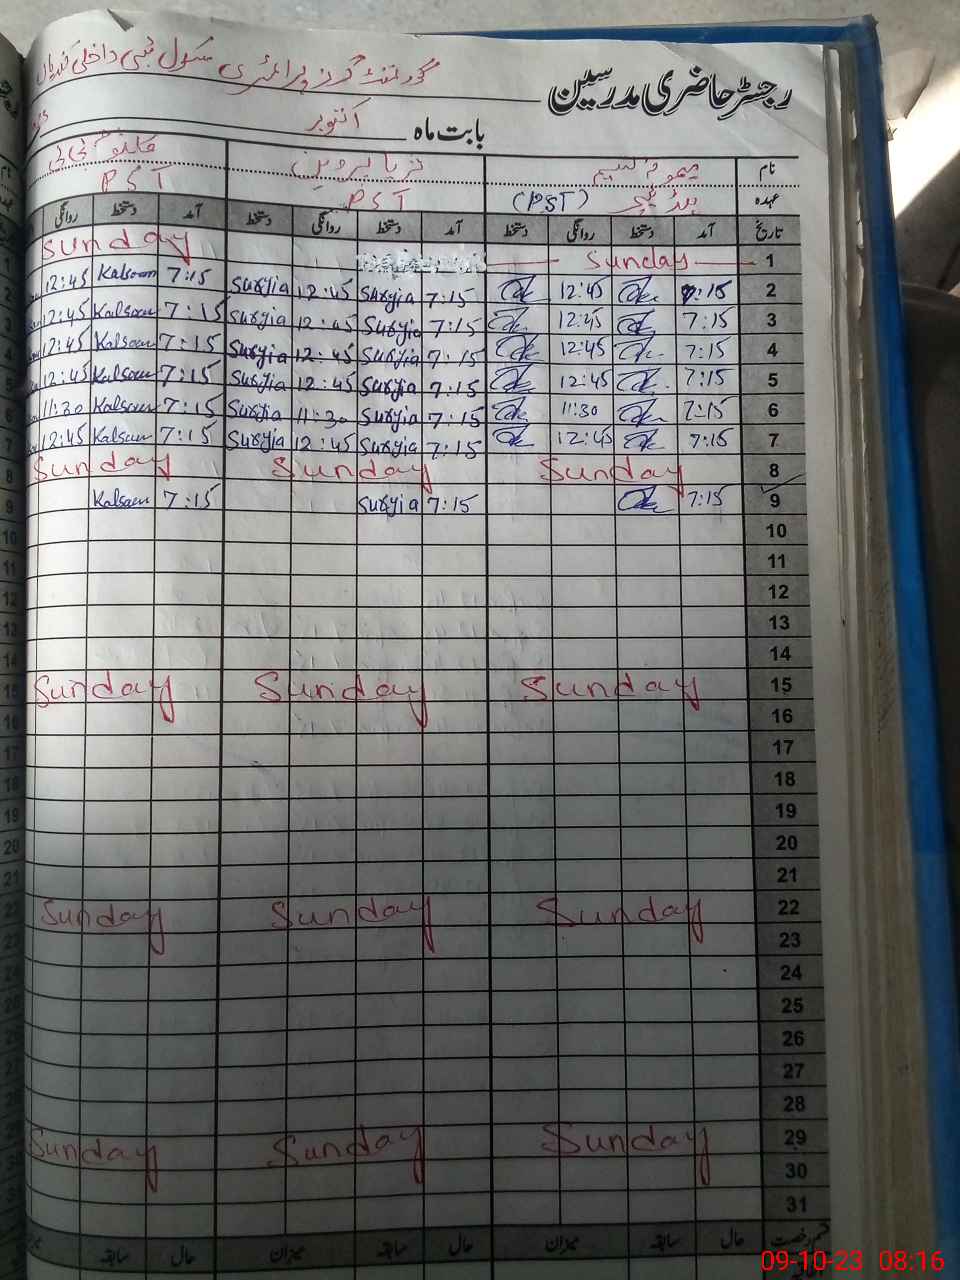 رجسٹر حاضری مدرسین گورنمنٹ گرلز پرائمری سکول ٹبی داخلی
بابت ماہ اکتوبر
نام ثریا پروین کلثوم بی بی
عہدہ ہیڈ ٹیچر (PST) PST PST
تاریخ آمد دستخط روانگی دستخط آمد دستخط روانگی دستخط آمد دستخط روانگی
1 Sunday Sunday
2 7:15 12:45 7:15 Surjia 12:45 Surjia 7:15 Kalsoom 12:45
3 7:15 12:45 7:15 Surjia 12:45 Surjia 7:15 Kalsoom 12:45
4 7:15 12:45 7:15 Surjia 12:45 Surjia 7:15 Kalsoom 12:45
5 7:15 12:45 7:15 Surjia 12:45 Surjia 7:15 Kalsoom 12:45
6 7:15 11:30 7:15 Surjia 11:30 Surjia 7:15 Kalsoom 11:30
7 7:15 12:45 7:15 Surjia 12:45 Surjia 7:15 Kalsoom 12:45
8 Sunday Sunday Sunday
9 7:15 7:15 Surjia 7:15 Kalsoom
10
11
12
13
14
15 Sunday Sunday Sunday
16
17
18
19
20
21
22 Sunday Sunday Sunday
23
24
25
26
27
28
29 Sunday Sunday Sunday
30
31
قسم رخصت حال سابقہ میزان حال سابقہ میزان حال سابقہ
09-10-23 08:16